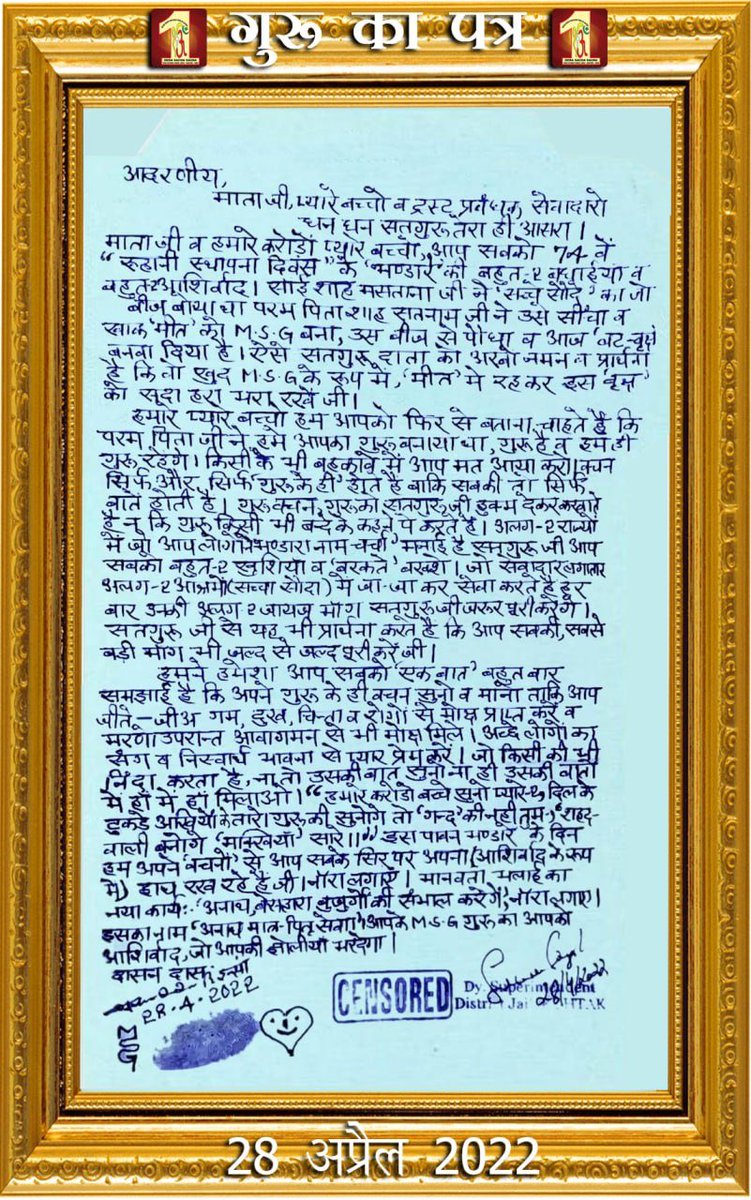 गुरू का पत्र
आदरणीय,
माता जी, प्यारे बच्चो व ट्रस्ट प्रबंधक सेवादारो
धन धन सतगुरू तेरा ही आसरा।
माता जी व हमारे करोड़ों प्यारे बच्चो, आप सबको 74 वें
“रूहानी स्थापना दिवस” के ‘भण्डारे’ की बहुत-२ बधाईयां व
बहुत-२ आशिर्वाद। साईं शाह मसताना जी ने ‘सच्चे सौदे’ का जो
बीज बोया था परम पिता शाह सतनाम जी ने उसे सींचा व
खाक ‘मीत’ को M.S.G बना, उस बीज से पौधा व आज ‘वट-वृक्ष’
बनवा दिया है। ऐसे सतगुरू दाता को अरबों नमन व प्रार्थना
है कि वो खुद M.S.G के रूप में, ‘मीत’ मे रहकर इस ‘वृक्ष’
को सदा हरा भरा रखें जी।
हमारे प्यारे बच्चो हम आपको फिर से बताना चाहते हैं कि
परम पिता जी ने हमें आपका गुरू बनाया था, गुरू है व हम ही
गुरू रहेंगे। किसी के भी बहकावे में आप मत आया करो। वचन
सिर्फ और सिर्फ गुरू के ही होते है बाकि सबकी तो सिर्फ
बातें होती है। गुरू वचन, गुरू को सतगुरू जी हुक्म देकर करवाते
है न कि गुरू किसी भी बन्दे के कहने पे करते है। अलग-२ राज्यों
में जो आप लोगों ने भण्डारा नाम-चर्चा मनाई है सतगुरू जी आप
सबको बहुत-२ खुशिया व ‘बरकतें’ बख्शें। जो सेवादार लगातार
अलग-२ आश्रमों (सच्चा सौदा) में जा-जा कर सेवा करते है हर
बार उनकी अलग-२ जायज मांग सतगुरू जी जरूर पूरी करेंगे।
सतगुरू जी से यह भी प्रार्थना करते है कि आप सबकी, सबसे
बड़ी मांग भी जल्द से जल्द पूरी करें जी।
हमने हमेशा आप सबको ‘एक बात’ बहुत बार
समझाई है कि अपने गुरू के ही वचन सुनो व मानो ताकि आप
जीते-जीअ गम, दुख, चिन्ता व रोगों से मोक्ष प्राप्त करें व
मरणा उपरान्त आवागमन से भी मोक्ष मिले। अच्छे लोगों का
संग व निस्वार्थ भावना से प्यार प्रेम करें। जो किसी की भी
निंदा करता है, ना तो उसकी बात सुनो ना ही उसकी बातों
में हां में हां मिलाओ। “हमारे करोडों बच्चे सुनो प्यारे-२, दिल के
टुकडे अखियों के तारा गुरू की सुनोगे तो ‘गन्द’ की नहीं तुम, ‘शहद-
वाली बनोगे ‘मक्खियाँ’ सारे।।” इस पावन भण्डारे के दिन
हम अपने ‘वचनों’ से आप सबके सिर पर अपना (आशिर्वाद के रूप
में) हाथ रख रहे है जी। नारा लगाएं। मानवता भलाई का
नया कार्य:- ‘अनाथ, बेसहारा बुजुर्गों की संभाल करेंगे’, नारा लगाए।
इसका नाम ‘अनाथ मात-पित सेवा’। आपके M.S.G गुरू का आपको
आशिर्वाद, जो आपकी झोलीयां भरेगा।
दासन दास
28.4.2022
MSG
CENSORED
Dy. Superintendent
28/4/2022
28 अप्रैल 2022